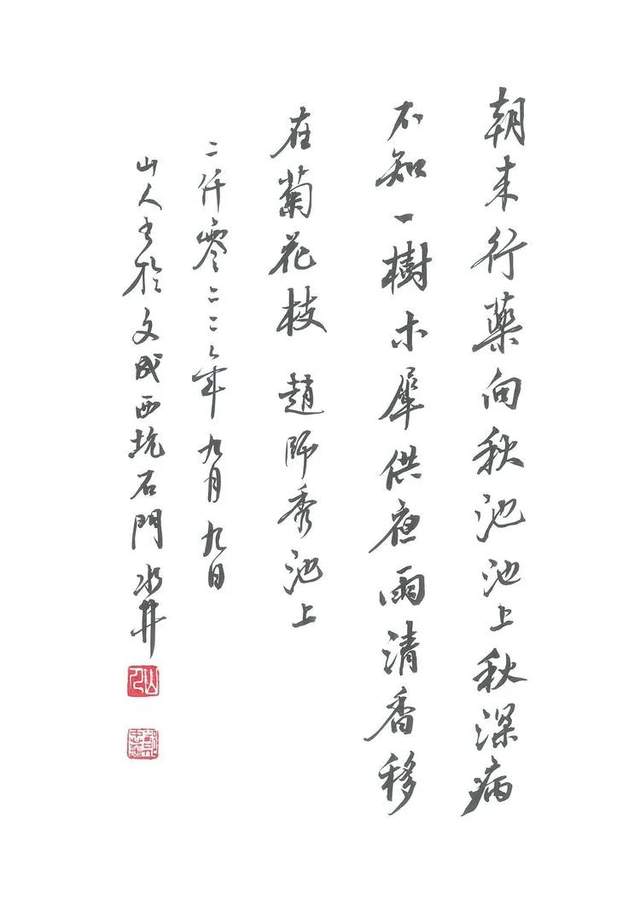 朝来行藥向秋池池上秋深病
不知一樹木犀供夜雨清香移
在菊花枝 趙師秀池上
二仟零二二年九月九日
山人书於文成西坑石門水井
山人